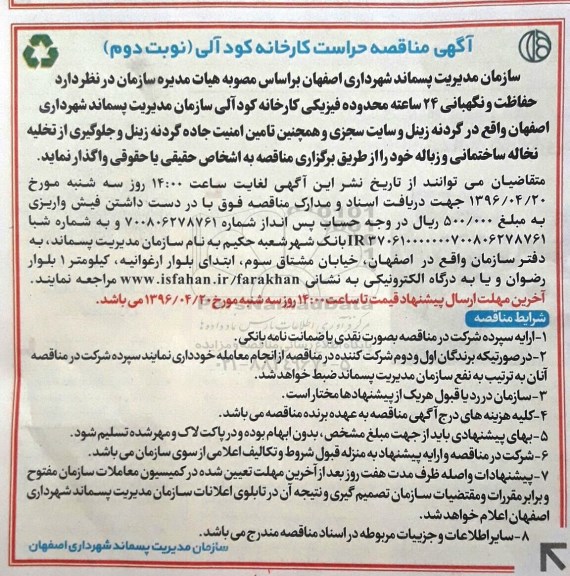 آگهی مناقصه حراست کارخانه کود آلی (نوبت دوم)
سازمان مدیریت پسماند شهرداری اصفهان براساس مصوبه هیات مدیره سازمان در نظر دارد
حفاظت و نگهبانی ۲۴ ساعته محدوده فیزیکی کارخانه کود آلی سازمان مدیریت پسماند شهرداری
اصفهان واقع در گردنه زینل و سایت سجزی و همچنین تامین امنیت جاده گردنه زینل و جلوگیری از تخلیه
نخاله ساختمانی و زباله خود را از طریق برگزاری مناقصه به اشخاص حقیقی یا حقوقی واگذار نماید.
متقاضیان می توانند از تاریخ نشر این آگهی لغایت ساعت ۱۴:۰۰ روز سه شنبه مورخ
۱۳۹۶/۰۴/۲۰ جهت دریافت اسناد و مدارک مناقصه فوق با در دست داشتن فیش واریزی
به مبلغ ۵۰۰/۰۰۰ ریال در وجه حساب پس انداز شماره ۷۰۰۸۰۶۲۷۸۷۶۱ و به شماره شبا
IR۳۷۰۶۱۰۰۰۰۰۰۰۷۰۰۸۰۶۲۷۸۷۶۱ بانک شهر شعبه حکیم به نام سازمان مدیریت پسماند، به
دفتر سازمان واقع در اصفهان، خیابان مشتاق سوم، ابتدای بلوار ارغوانیه، کیلومتر ۱ بلوار
رضوان و یا به درگاه الکترونیکی به نشانی www.isfahan.ir/farakhan مراجعه نمایند.
آخرین مهلت ارسال پیشنهاد قیمت تا ساعت ۱۴:۰۰ روز سه شنبه مورخ ۱۳۹۶/۰۴/۲۰ می باشد.
شرایط مناقصه
۱-ارایه سپرده شرکت در مناقصه بصورت نقدی یا ضمانت نامه بانکی
۲-در صورتیکه برندگان اول و دوم شرکت کننده در مناقصه از انجام معامله خودداری نمایند سپرده شرکت در مناقصه
آنان به ترتیب به نفع سازمان مدیریت پسماند ضبط خواهد شد.
۳-سازمان در رد یا قبول هر یک از پیشنهادها مختار است.
۴-کلیه هزینه های درج آگهی مناقصه به عهده برنده مناقصه می باشد.
۵-بهای پیشنهادی باید از جهت مبلغ مشخص، بدون ابهام بوده و در پاکت لاک و مهر شده تسلیم شود.
۶-شرکت در مناقصه و ارایه پیشنهاد به منزله قبول شروط و تکالیف اعلامی از سوی سازمان می باشد.
۷-پیشنهادات واصله ظرف مدت هفت روز بعد از آخرین مهلت تعیین شده در کمیسیون معاملات سازمان مفتوح
و برابر مقررات و مقتضیات سازمان تصمیم گیری و نتیجه آن در تابلوی اعلانات سازمان مدیریت پسماند شهرداری
اصفهان اعلام خواهد شد.
۸-سایر اطلاعات و جزییات مربوطه در اسناد مناقصه مندرج می باشد.
سازمان مدیریت پسماند شهرداری اصفهان